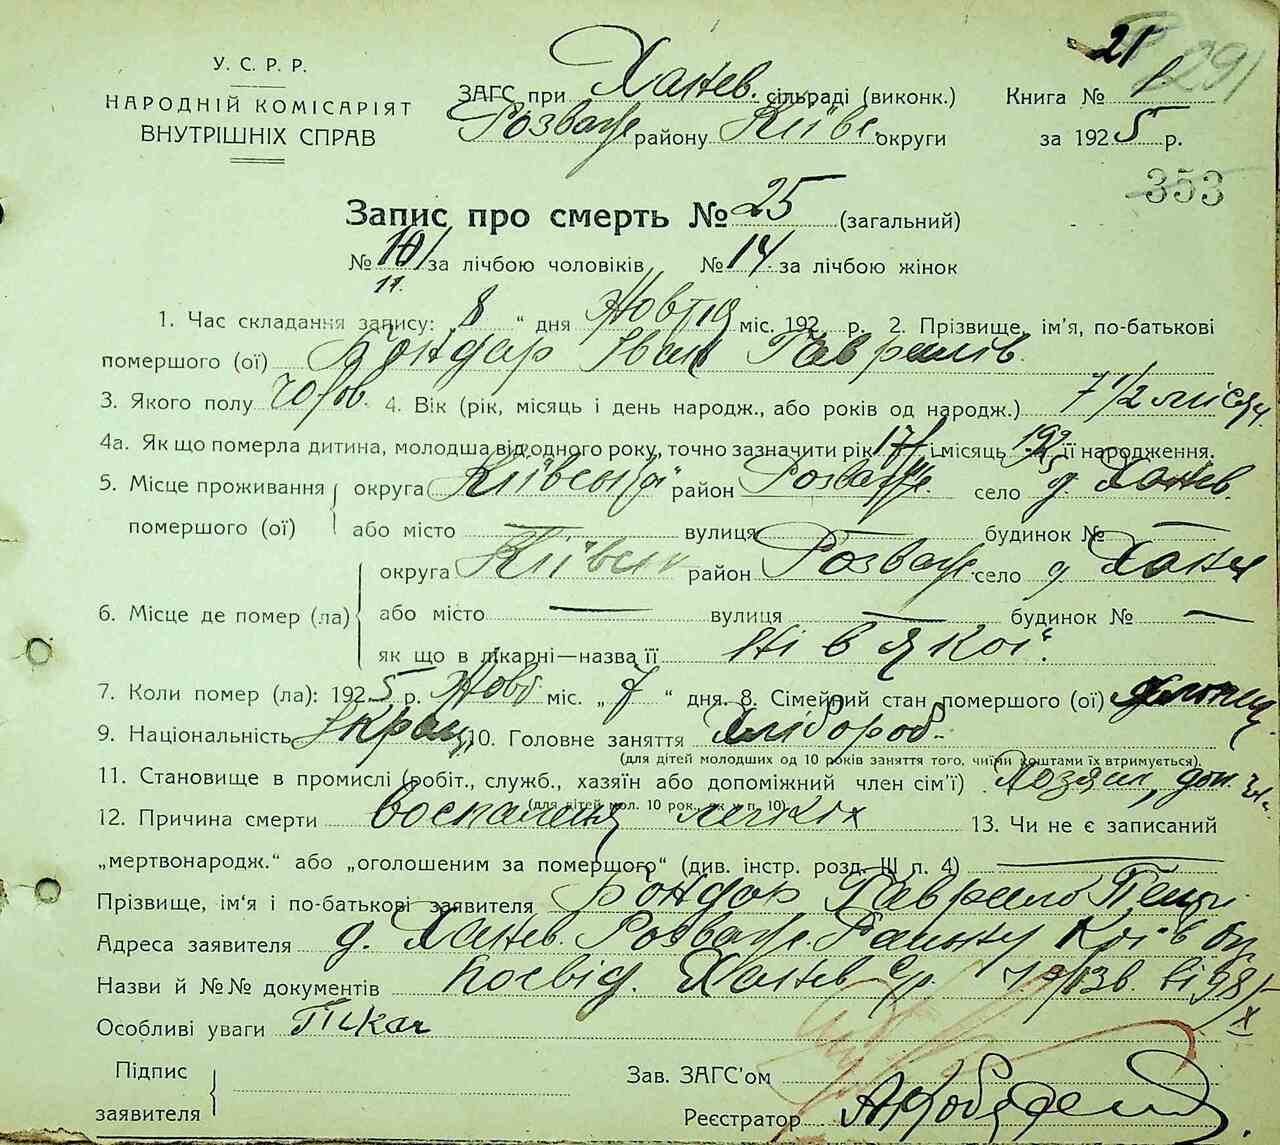 У. С. Р. Р.
НАРОДНІЙ КОМІСАРІЯТ
ВНУТРІШНІХ СПРАВ
ЗАГС при Ханев. сільраді (виконк.)
Розваж району Київс. округи
21
291
Книга № 1
за 1925 р.
353
Запис про смерть № 25 (загальний)
№ 10 за лічбою чоловіків № 14 за лічбою жінок
11.
1. Час складання запису: „ 8 “ дня Жовтня міс. 192 р. 2. Прізвище, ім'я, по-батькові
помершого (ої) Кондар Іван Гаврилів.
3. Якого полу чолов. 4. Вік (рік, місяць і день народж., або років од народж.) 7 1/2 місяц.
4а. Як що померла дитина, молодша від одного року, точно зазначити рік і місяць її народження.
5. Місце проживання помершого (ої) округа Київська район Розваж. село д. Ханев.
або місто — вулиця — будинок № —
6. Місце де помер (ла) округа Київськ район Розваж. село д Ханев
або місто — вулиця — будинок № —
як що в лікарні—назва її ні в якої.
7. Коли помер (ла): 1925 р. Жовт. міс. „ 7 “ дня. 8. Сімейний стан помершого (ої)
9. Національність Україн. 10. Головне заняття Хлібороб.
(для дітей молодших од 10 років заняття того, чиїми коштами їх втримується).
11. Становище в промислі (робіт., служб., хазяїн або допоміжний член сім'ї) Хозяин, доп. чл.
(для дітей мол. 10 рок., як у п. 10)
12. Причина смерти воспаления легких 13. Чи не є записаний
„мертвонародж.“ або „оголошеним за помершого“ (див. інстр. розд. III п. 4) —
Прізвище, ім'я і по-батькові заявителя Кондар Гаврило
Адреса заявителя д. Ханев. Розваж. Району Київ
Назви й №№ документів посвід. Ханев с/р.
Особливі уваги
Підпис заявителя
Зав. ЗАГС'ом
Реєстратор